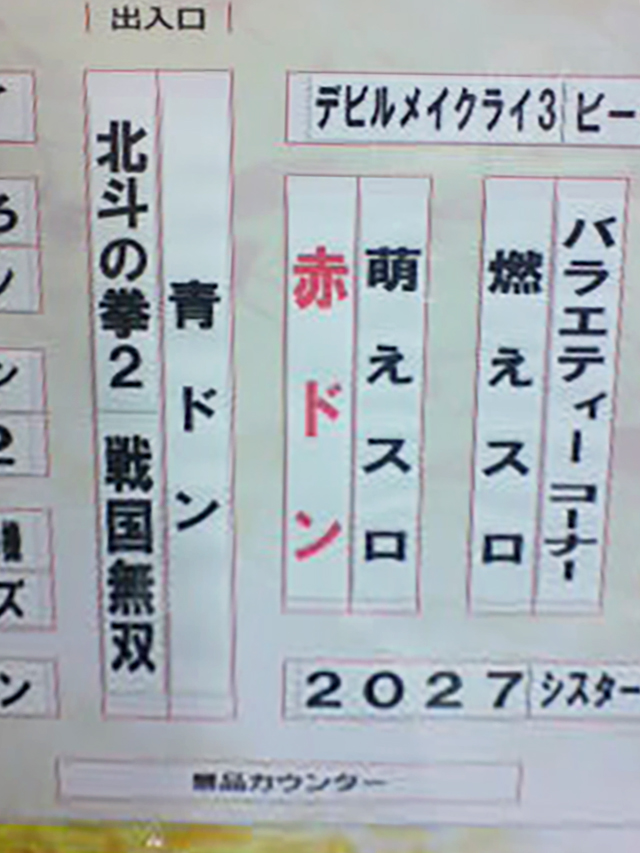 出入口
デビルメイクライ3
ビー
北斗の拳2 戦国無双
青ドン
赤ドン
萌えスロ
燃えスロ
バラエティーコーナー
2027
シスター
景品カウンター
ズ
ン